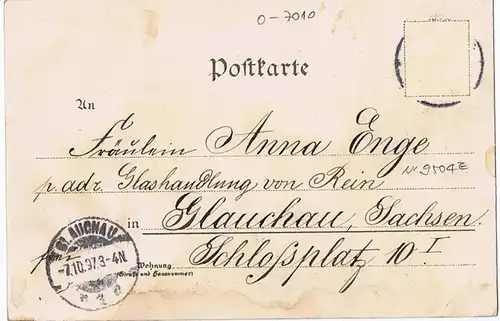 0-7010
Postkarte
An
Fräulein Anna Enge
p. adr. Glashandlung von Rein
N° 9504E
in Glauchau, Sachsen.
Schloßplatz 10 I
Wohnung
(Straße und Hausnummer)
GLAUCHAU
7.10.97.3-4N.